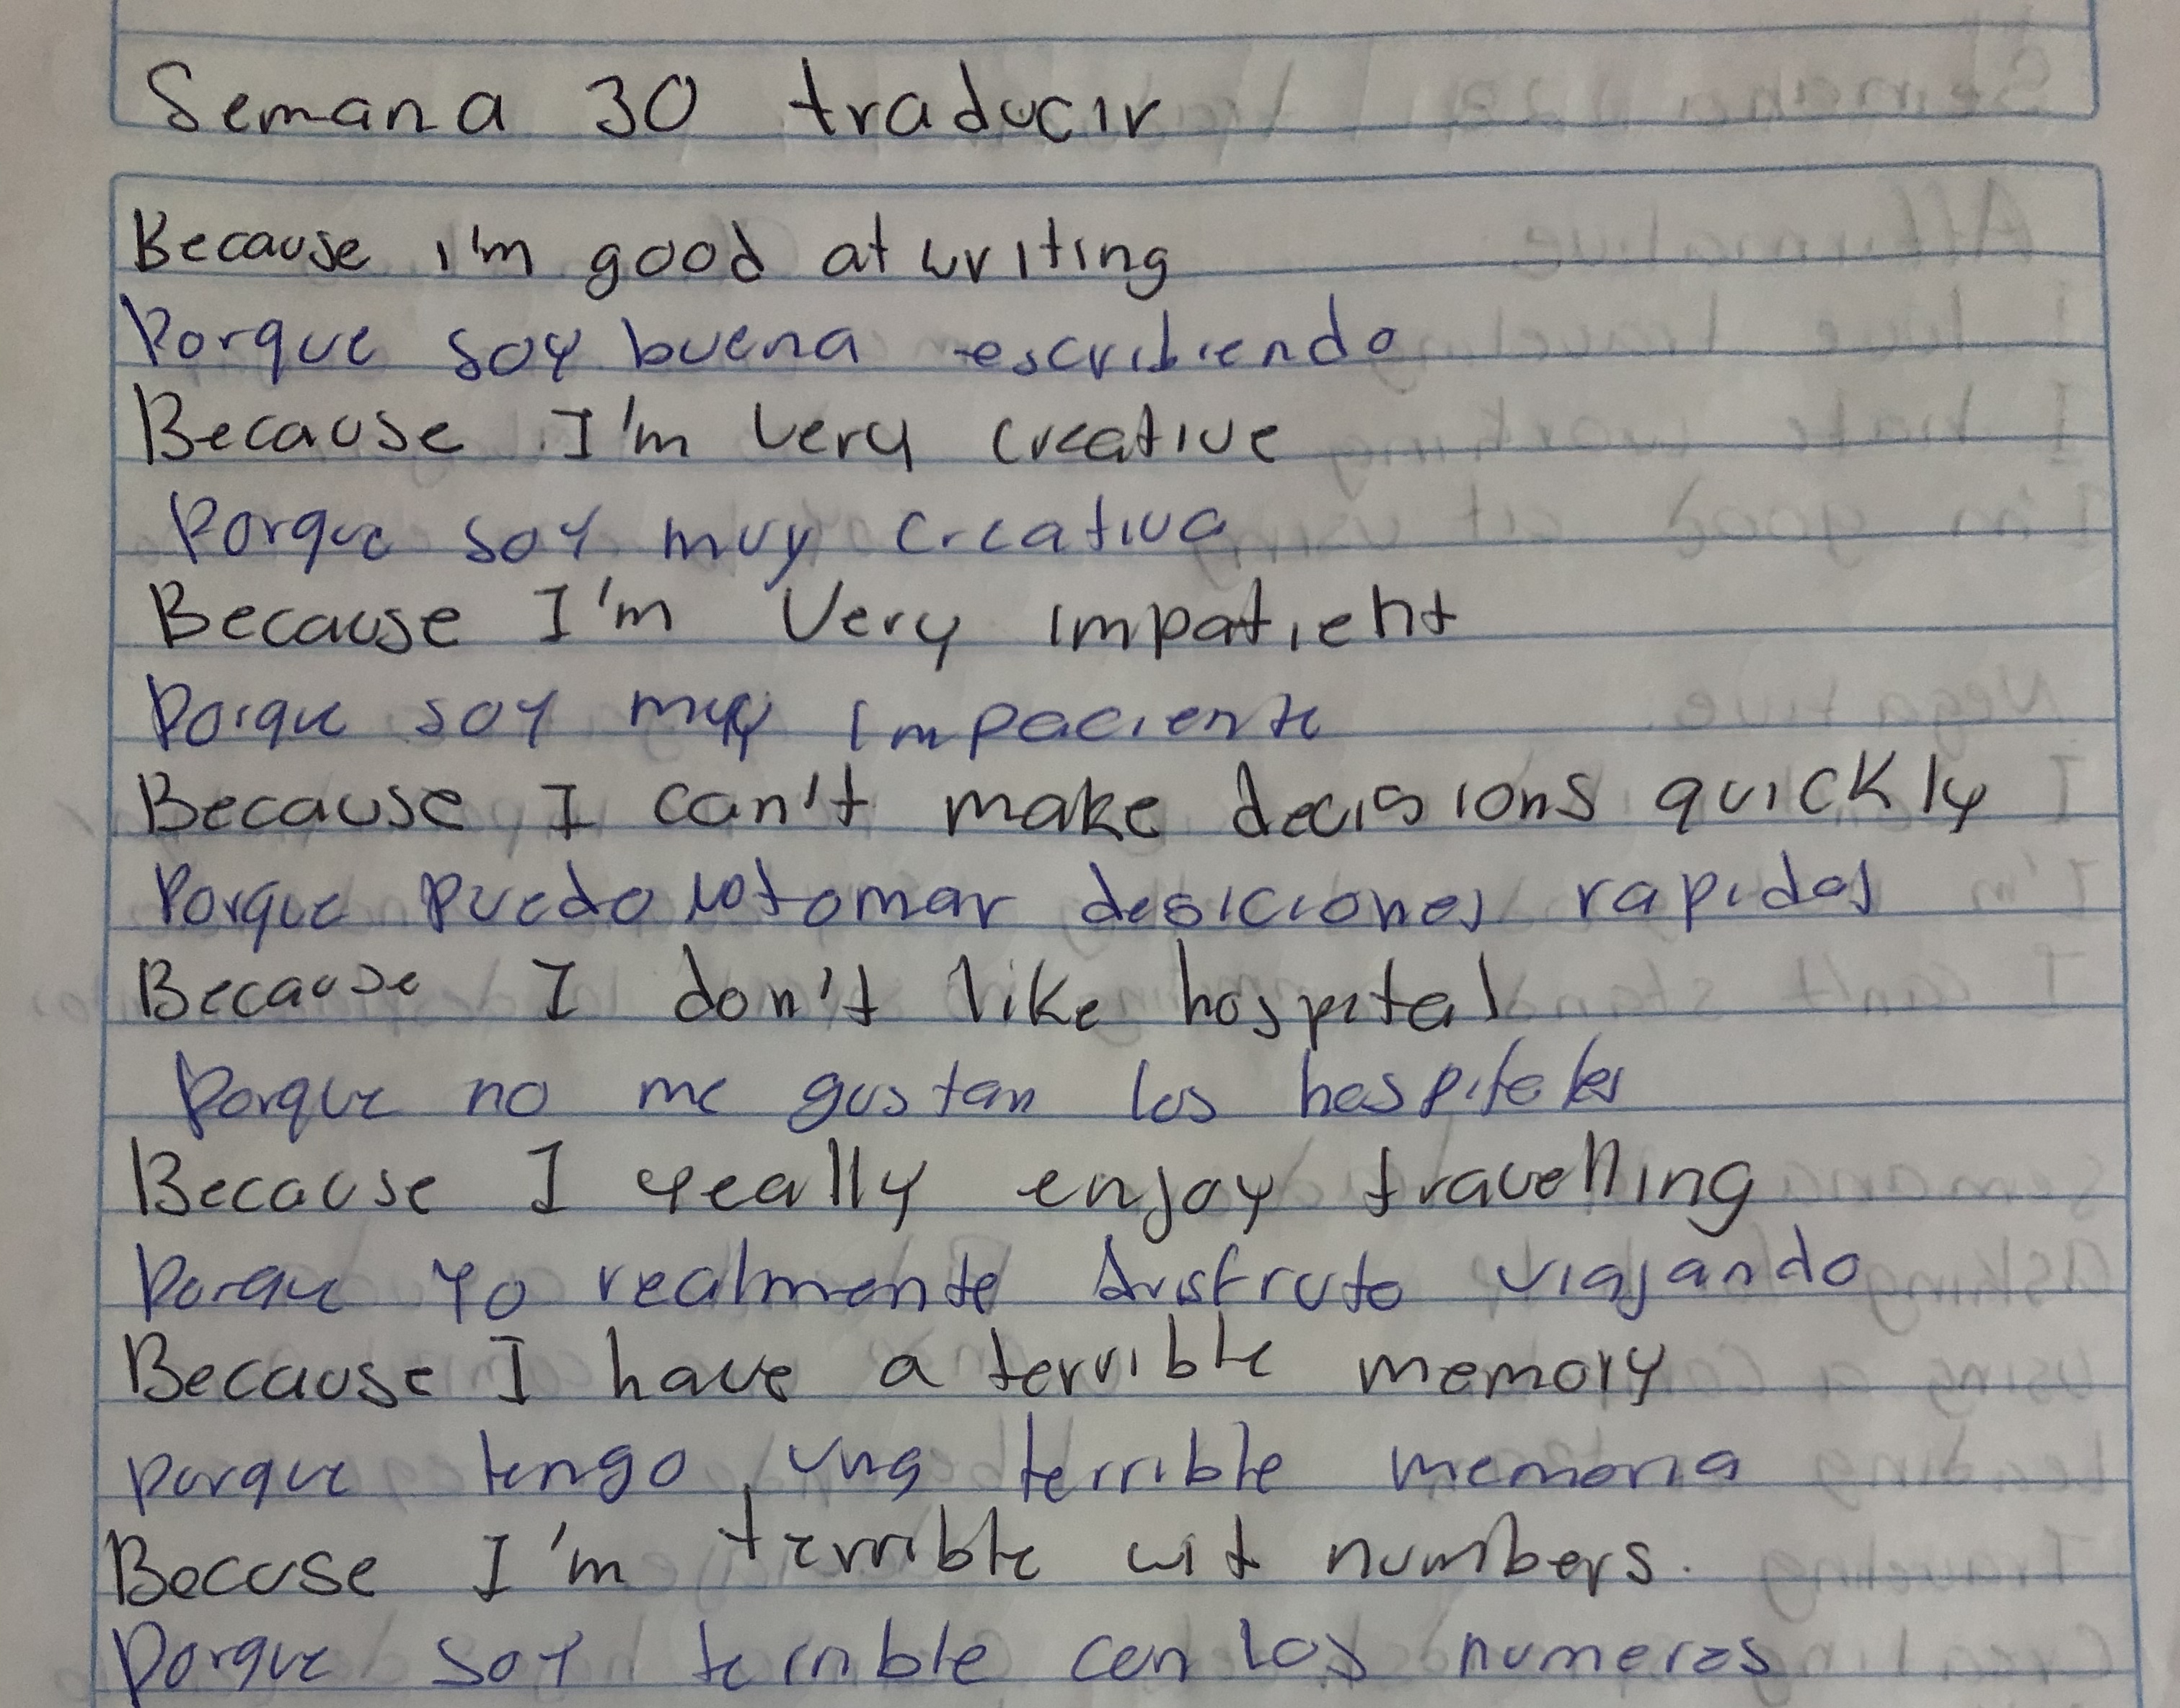 Semana 30 traducir
Because I'm good at writing
Porque soy buena escribiendo
Because I'm very creative
Porque soy muy creativa
Because I'm Very impatient
Porque soy muy impaciente
Because I can't make decisions quickly
Porque puedo no tomar desiciones rapidas
Because I don't like hospital
Porque no me gustan los hospitales
Because I really enjoy travelling
Porque yo realmente disfruto viajando
Because I have a terrible memory
Porque tengo una terrible memoria
Becuse I'm terrible wit numbers.
Porque soy terrible con los numeros